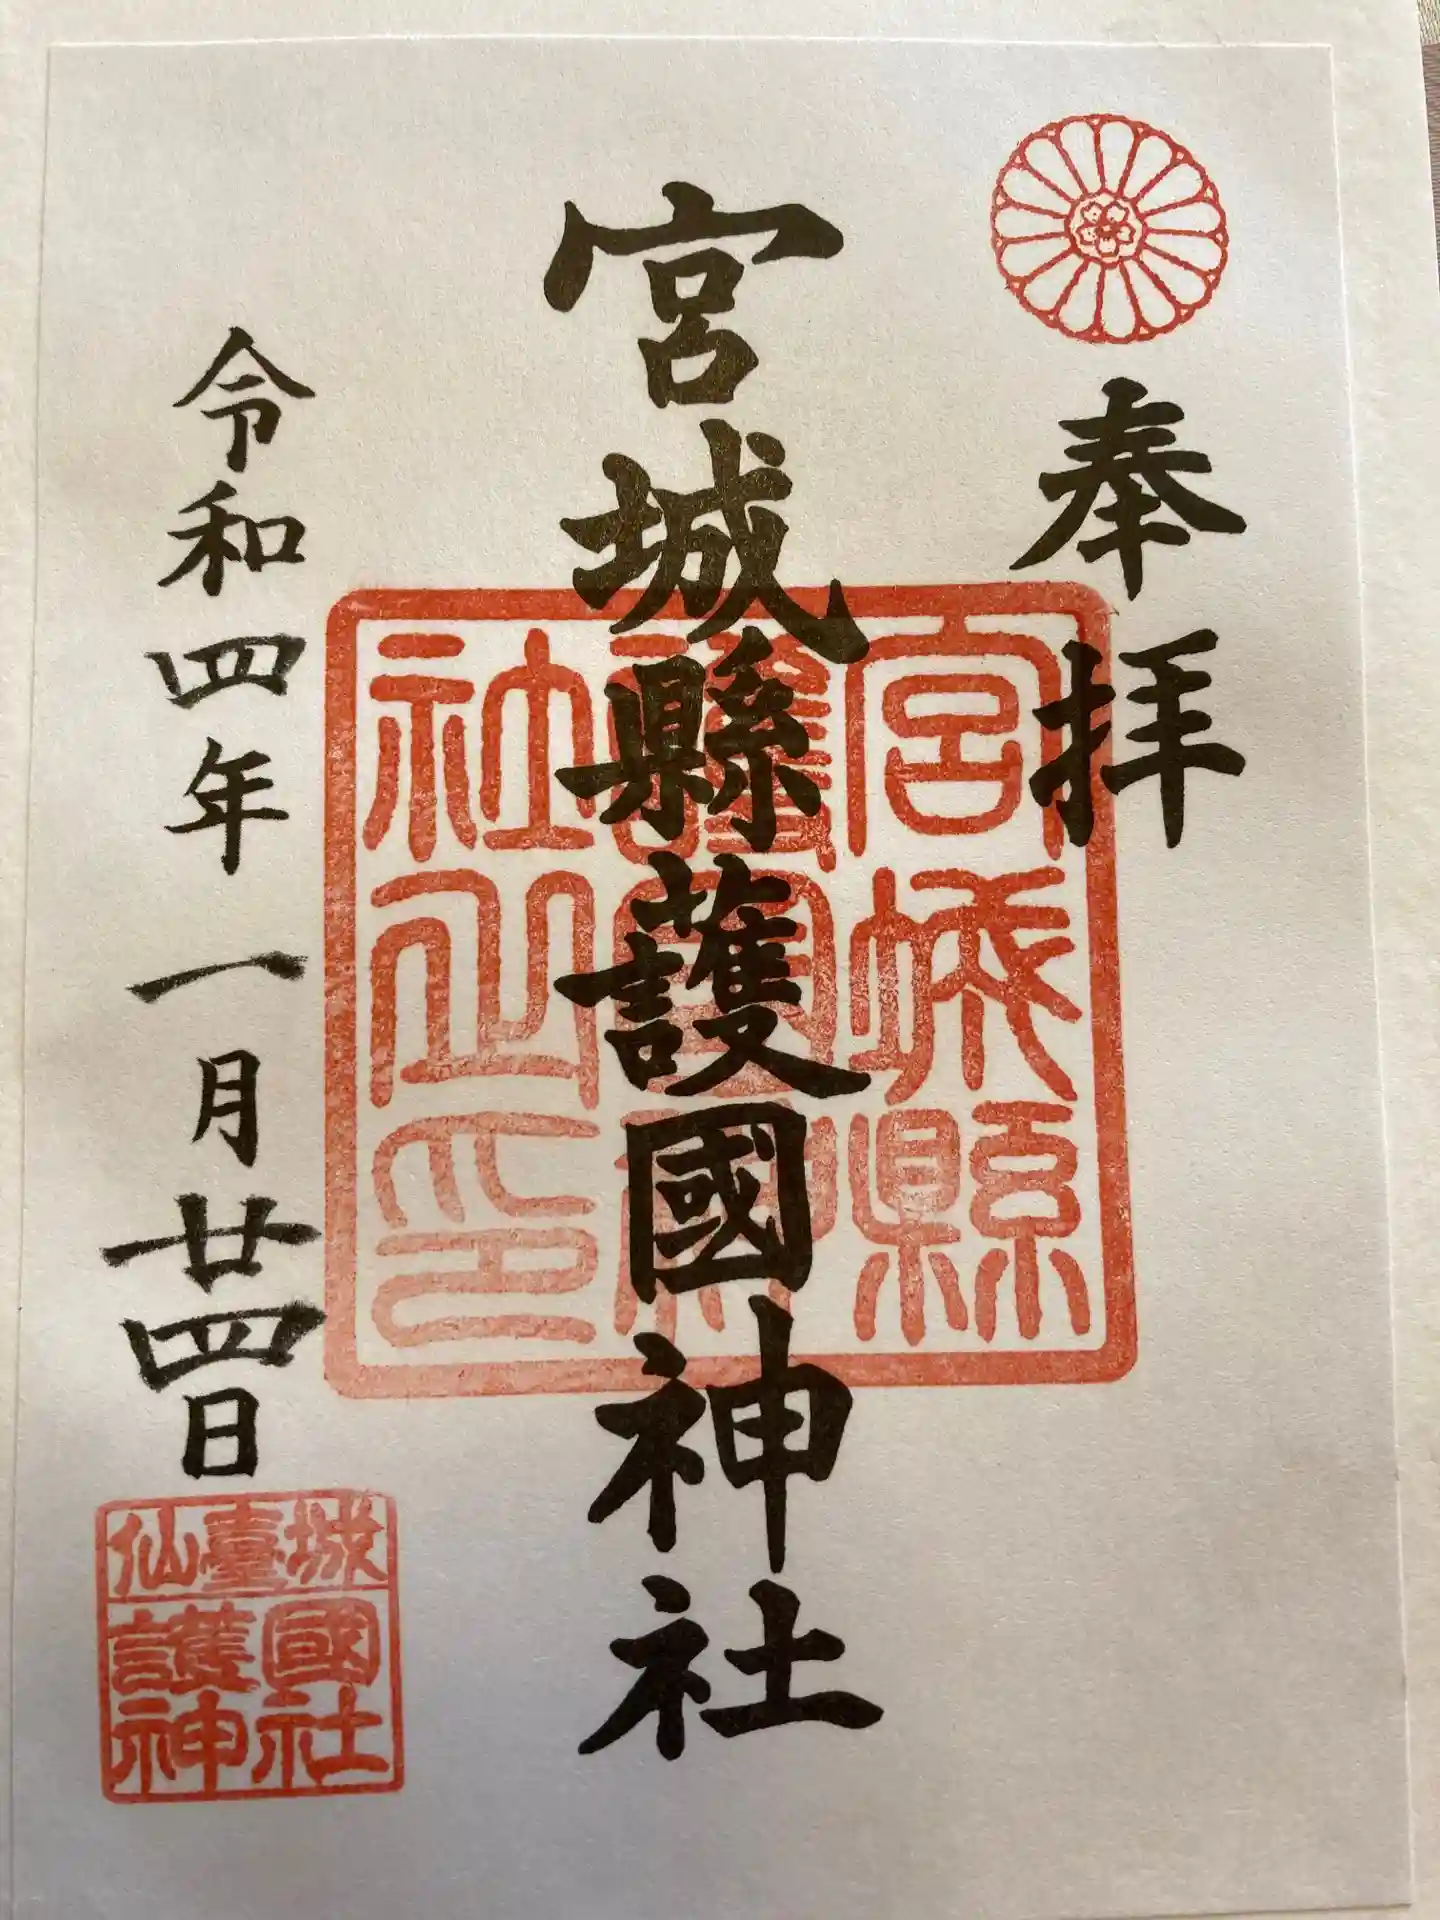 奉拝
宮城縣護國神社
宮城縣
護國神
社之印
令和四年一月廿四日
仙臺城
護國
神社